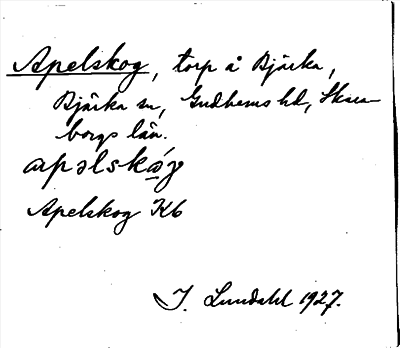 Apelskog, torp å Bjärka,
Bjärka sn, Gudhems hd, Skara-
borgs län.
apəlskóγ
Apelskog Kb
I. Lundahl 1927.